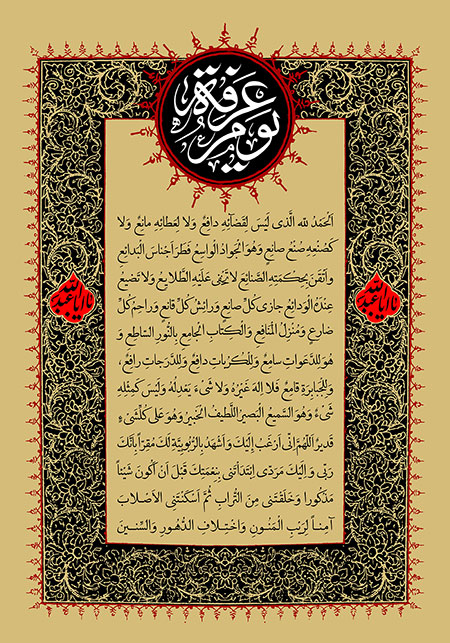 يوم عرفة
اَلْحَمْدُ لله الَّذى لَيْسَ لِقَضآئِهِ دافِعٌ وَلا لِعَطائِهِ مانِعٌ وَلا
كَصُنْعِهِ صُنْعُ صانِعٍ وَهُوَ الْجَوادُ الْواسِعُ فَطَرَ اَجْناسَ الْبَدائِعِ
واَتْقَنَ بِحِكْمَتِهِ الصَّنائِعَ لا تَخْفى عَلَيْهِ الطَّلايِعُ وَلا تَضيعُ
عِنْدَهُ الْوَدائِعُ جازى كُلِّ صانِعٍ وَرائِشُ كُلِّ قانعٍ وَراحِمُ كُلِّ
ضارِعٍ وَمُنْزِلُ الْمَنافِعِ وَالْكِتابِ الْجامِعِ بِالنُّورِ السّاطِعِ وَ
هُوَ لِلدَّعَواتِ سامِعٌ وَلِلْكُرُباتِ دافِعٌ وَلِلدَّرَجاتِ رافِعٌ،
وَلِلْجَبابِرَةِ قامِعٌ فَلا اِلهَ غَيْرُهُ وَلا شَىءَ يَعْدِلُهُ وَلَيْسَ كَمِثْلِهِ
شَىْءٌ وَهُوَ السَّميعُ الْبَصيرُ اللَّطيفُ الْخَبيرُ وَهُوَ عَلى كُلِّ شَىْءٍ
قَديرٌ اَللّهُمَّ اِنّى اَرْغَبُ إِلَيْكَ وَاَشْهَدُ بِالرُّبُوبِيَّةِ لَكَ مُقِرّاً بِاَنَّكَ
رَبّى وَ اِلَيْكَ مَرَدّى اِبْتَدَأتَنى بِنِعْمَتِكَ قَبْلَ اَنْ اَكُونَ شَيْئاً
مَذْكُورا وَخَلَقْتَنى مِنَ التُّرابِ ثُمَّ اَسْكَنْتَنِى الاَْصْلابَ
آمِناً لِرَيْبِ الْمَنُونِ وَاخْتِلافِ الدُّهُورِ وَالسِّنينَ